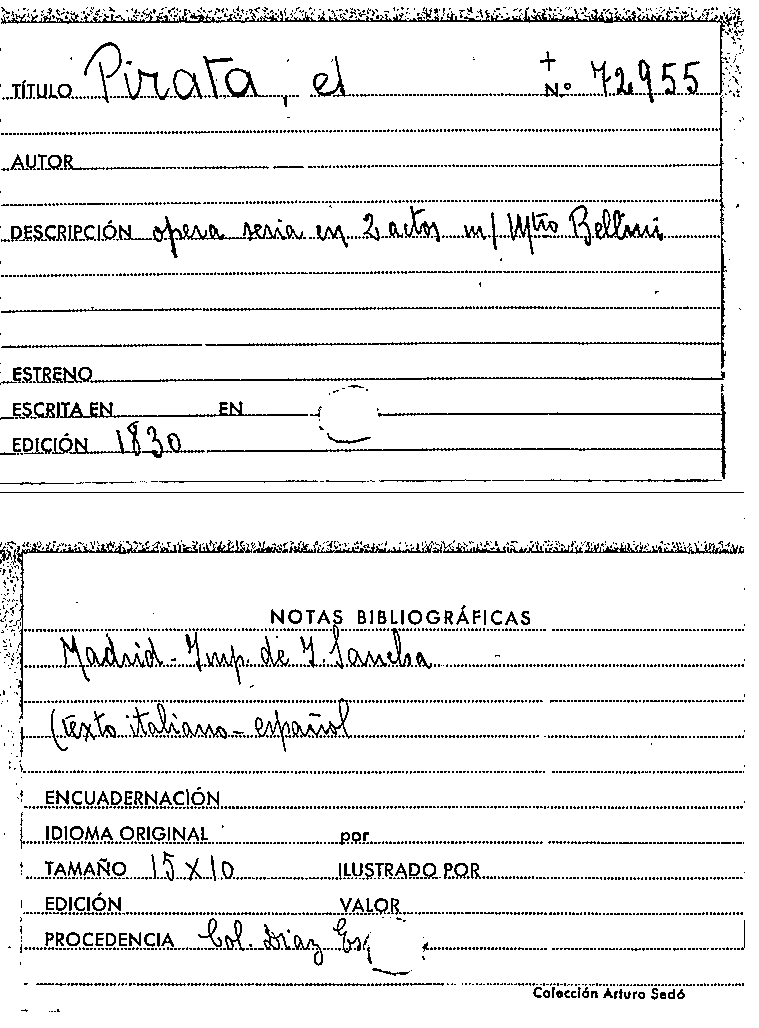 TÍTULO Pirata, el + N.º 72955
AUTOR
DESCRIPCIÓN opera seria en 2 actos m/ Mtro Bellini
ESTRENO
ESCRITA EN EN
EDICIÓN 1830
NOTAS BIBLIOGRÁFICAS
Madrid - Imp. de I. Sancha
(texto italiano - español
ENCUADERNACIÓN
IDIOMA ORIGINAL por
TAMAÑO 15 X 10 ILUSTRADO POR
EDICIÓN VALOR
PROCEDENCIA Col. Diaz
Colección Arturo Sedó